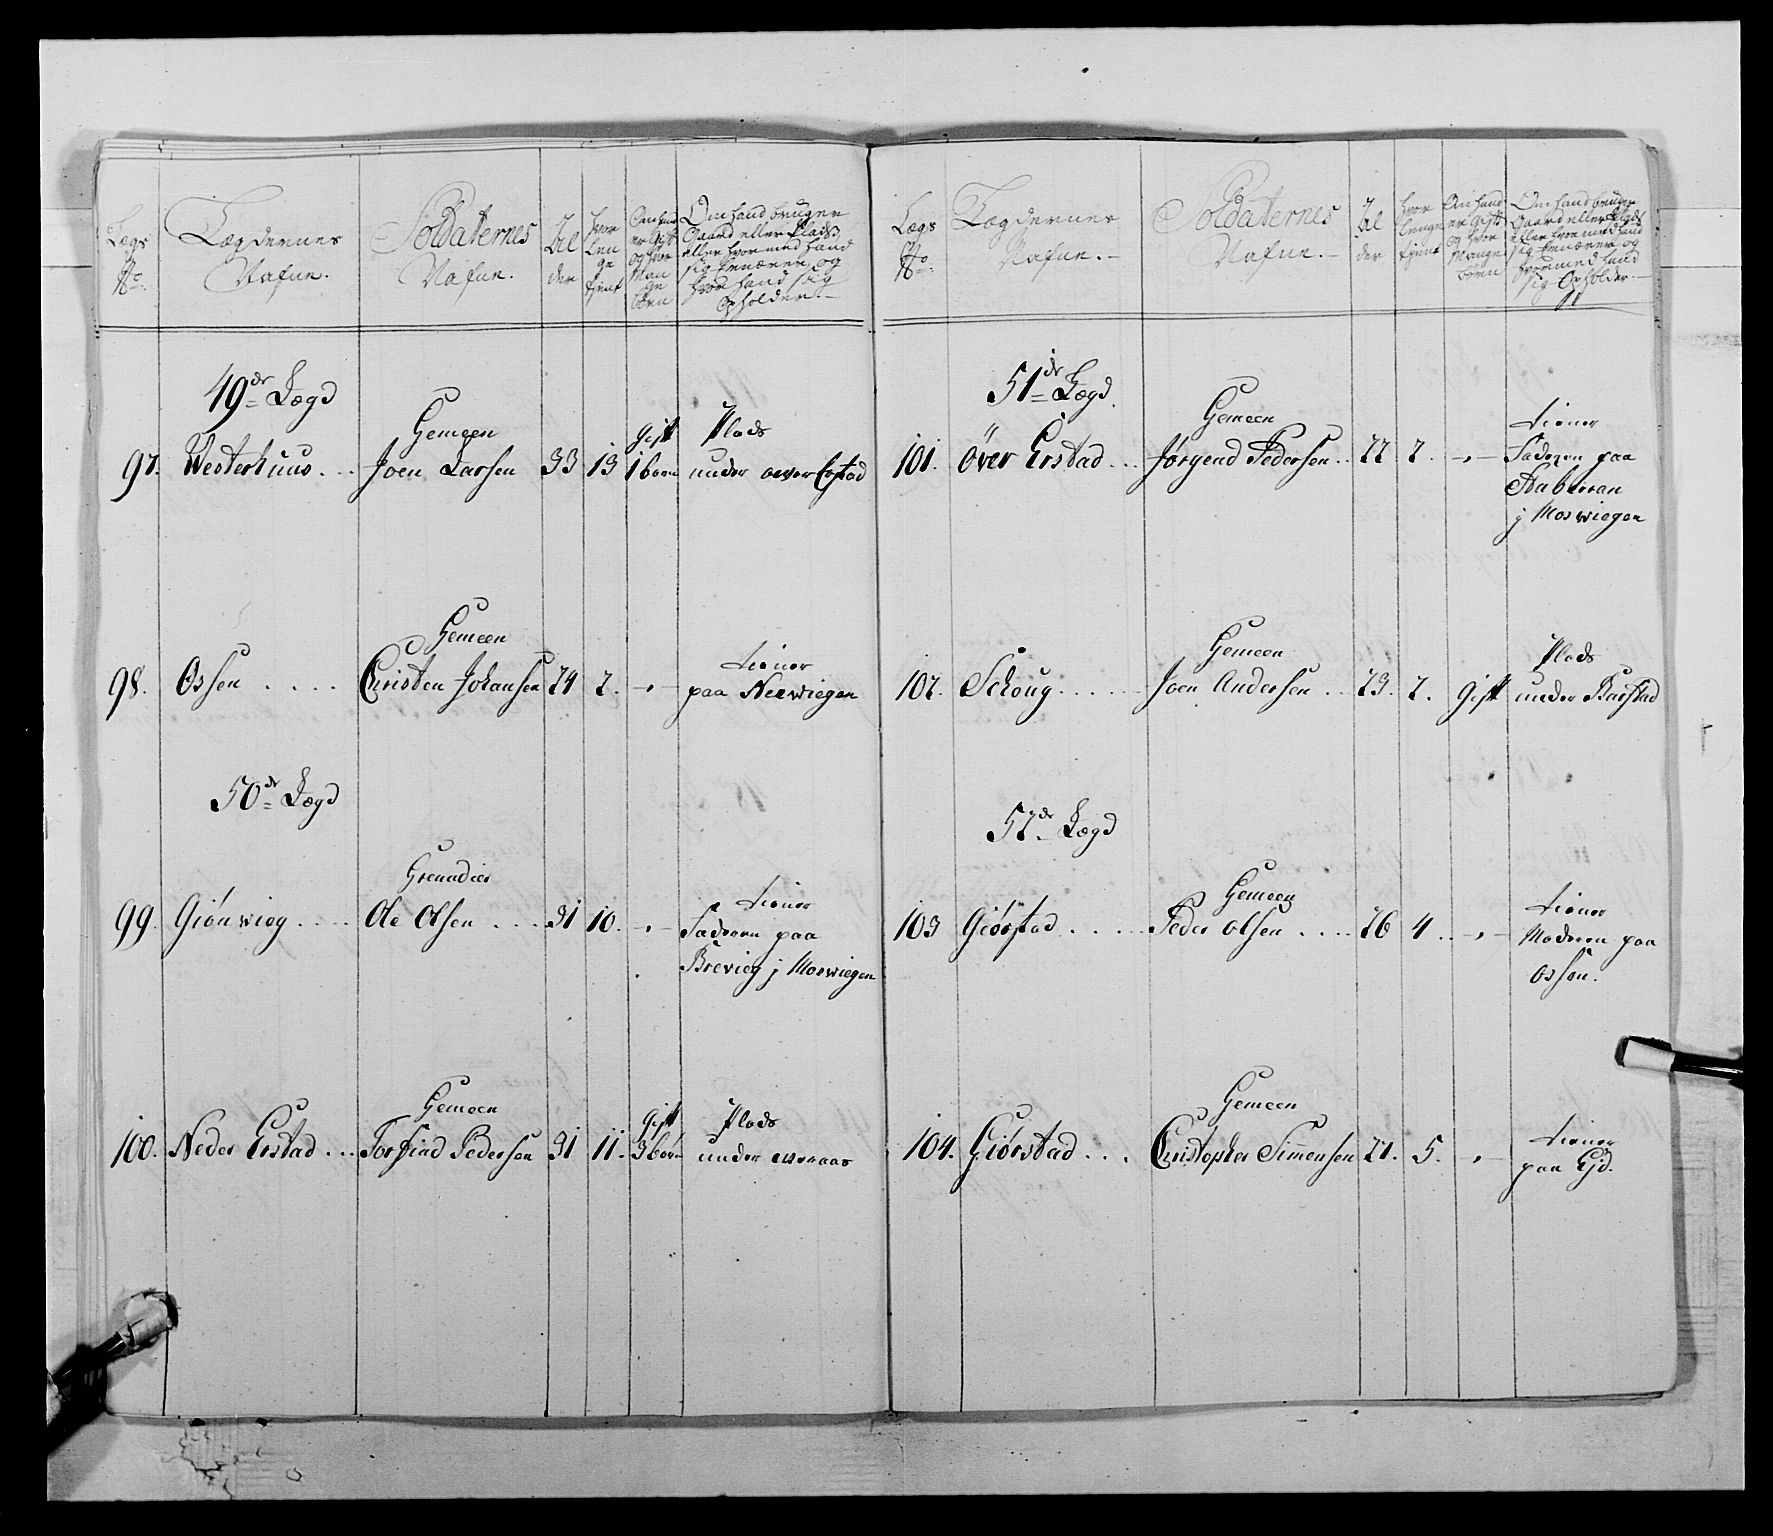 Lægs No:
Lægdernes Nafne.
Soldaternes Nafne.
Alder
hvor lenge tient
Om hand er gift og hvor Mange børn
Om hand bruger Gaard eller Plads, eller hvor med hand sig Ernærer, og hvor hand sig Opholder.
49de Lægd
97. Westerhuus . . Gemeen Joen Larsen 33 13 gift 1 børn Plads under over Erstad
98. Ossen . . . . Gemeen Christen Johansen 24 2. - tiener paa Neswiegen
50de Lægd
99. Giönwieg . . . . Grenadier Ole Olsen . . . 31 10. - tiener Faderen paa Brevieg j Moswiegen
100. Neder Erstad . . . Gemeen Torfind Pedersen 31 11. gift 3 børn Plads under
Lægs No:
Lægdernes Nafne.
Soldaternes Nafne.
Alder
hvor lenge tient
Om hand er gift og hvor Mange børn
Om hand bruger Gaard eller Plads eller hvor med hand sig Ernærer og hvor med hand sig Opholder
51de Lægd.
101. över Erstad . . . Gemeen Jørgend Pedersen . . 22 2. - tiener Faderen paa j Moswiegen
102. Schoug . . . . . Gemeen Joen Andersen . . 23. 2. gift Plads under Barstad
52de Lægd
103 Giörstad . . . . . Gemeen Peder Olsen . . . . 26 4 . . - tiener Moderen paa Ossen.
104. Giörstad . . . Gemeen Christopher Simensen 27. 5. - tiener paa Ejd.